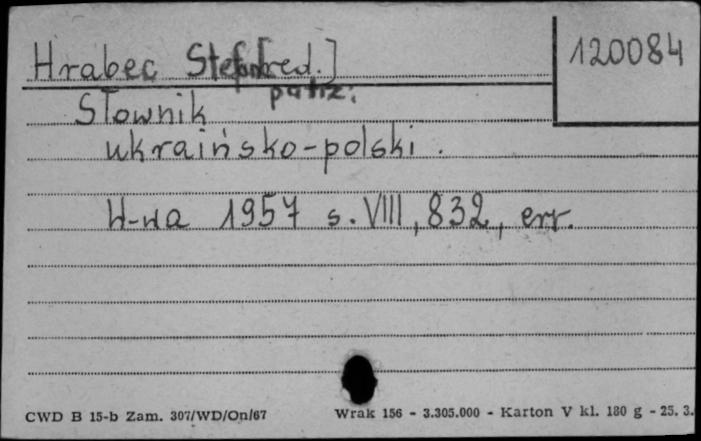 Hrabec Stefan [red.]
120084
patrz:
Słownik
ukraińsko-polski.
W-wa 1957 s. VIII, 832, err.
CWD B 15-b Zam. 307/WD/On/67 Wrak 156 - 3.305.000 - Karton V kl. 180 g - 25. 3.